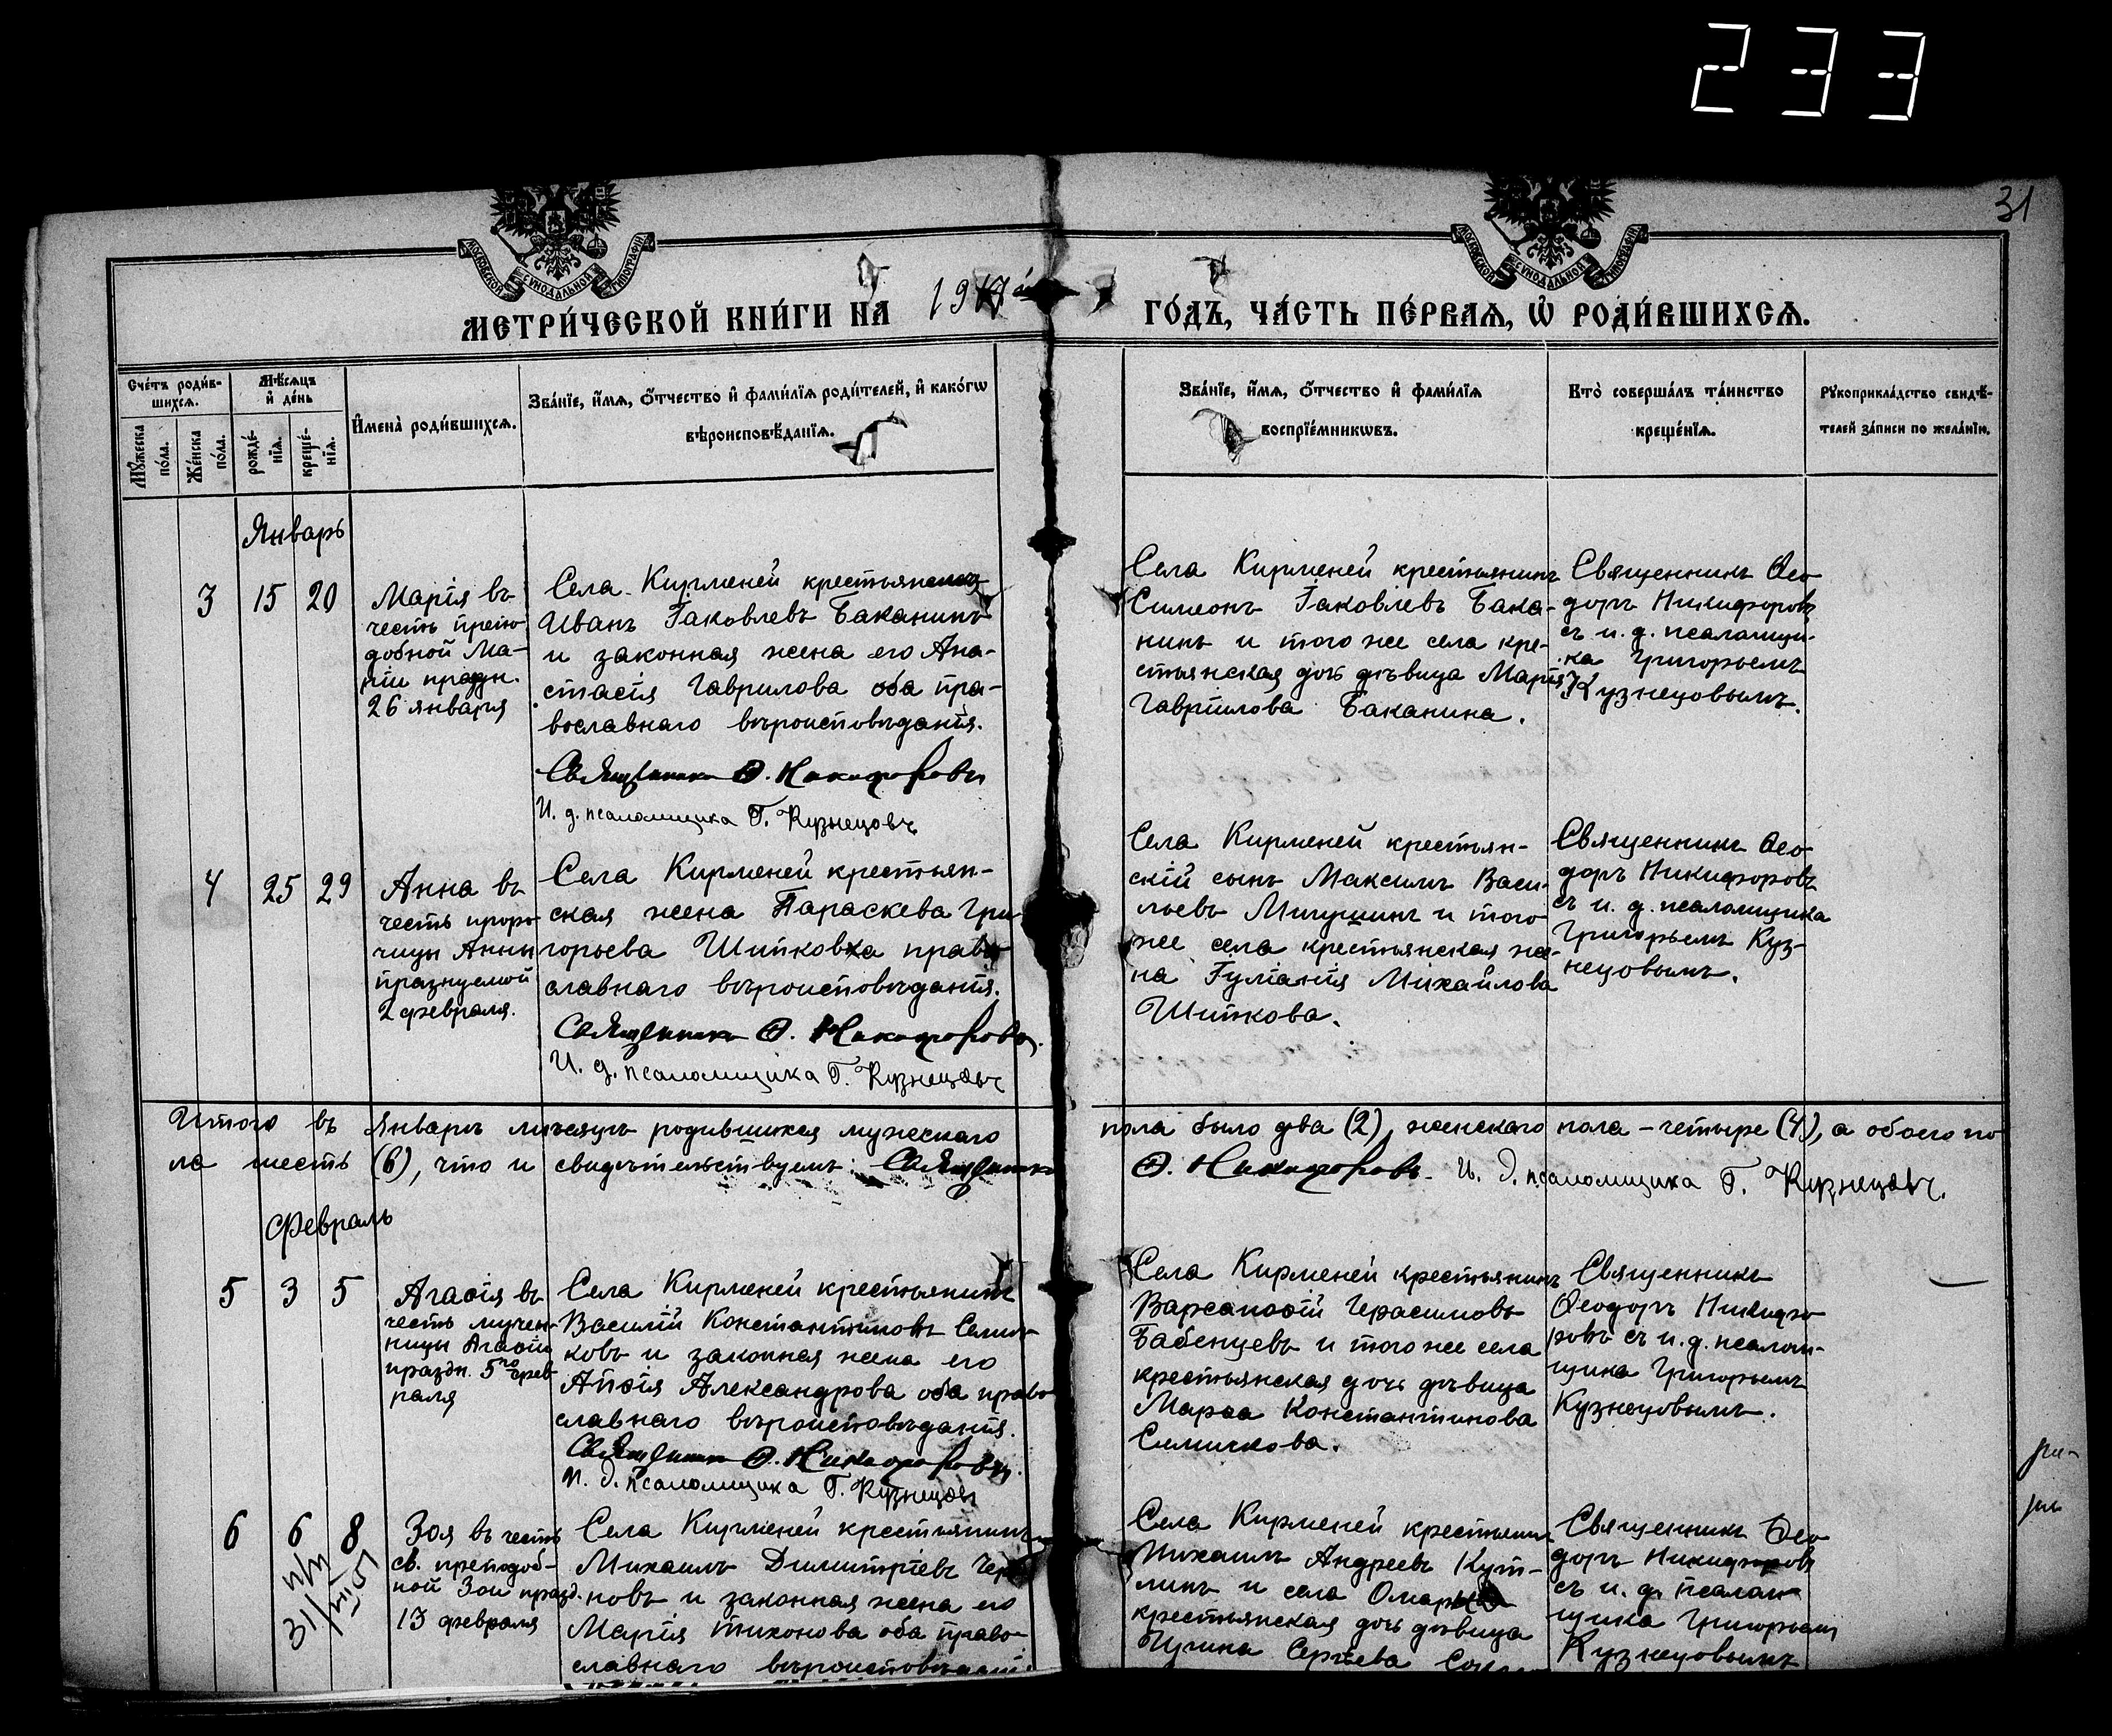 233
31
МОСКОВСКОЙ СѴНОДАЛЬНОЙ ТИПОГРАФІИ
МОСКОВСКОЙ СѴНОДАЛЬНОЙ ТИПОГРАФІИ
МЕТРИ́ЧЕСКОЙ КНИ́ГИ НА 1917й ГО́ДЪ, ЧА́СТЬ ПЕ́РВАѦ, Ѡ҆ РОДИ́ВШИХСѦ.
Сче́тъ роди́в-
шихсѧ.
Мꙋ́жеска по́ла.
Же́нска по́ла.
Мѣ́сѧцъ
и҆ де́нь
рожде́-
нїѧ.
креще́-
нїѧ.
И҆мена̀ роди́вшихсѧ.
Зва́нїе, и҆́мѧ, ѻ҆́тчество и҆ фами́лїѧ роди́телей, и҆ како́гѡ
вѣроисповѣ́данїѧ.
Зва́нїе, и҆́мѧ, ѻ҆́тчество и҆ фами́лїѧ
воспрїе́мникѡвъ.
Кто̀ соверша́лъ та́инство
креще́нїѧ.
Рꙋкоприкла́дство свидѣ́-
телей за́писи по жела́нїю.
Январь
3 15 20
Марія въ
честь препо
добной Ма-
ріи праздн.
26 января
Села Кирменей крестьянинъ
Иванъ Іаковлевъ Баканинъ
и законная жена его Ана-
стасія Гаврилова оба пра-
вославнаго вѣроисповѣданія.
Священникъ Ѳ. Никифоровъ
И. д. псаломщика Г. Кузнецовъ
Села Кирменей крестьянинъ
Симеонъ Іаковлевъ Бака-
нинъ и того же села кре-
стьянская дочь дѣвица Марія
Гавріилова Баканина.
Священникъ Ѳео
доръ Никифоровъ
съ и. д. псаломщи-
ка Григорьемъ
Кузнецовымъ.
4 25 29
Анна въ
честь проро
чицы Анны
празнуемой
2 февраля.
Села Кирменей крестьян-
ская жена Параскева Гри
горьева Шиткова право
славнаго вѣроисповѣданія.
Священникъ Ѳ. Никифоровъ.
И. д. псаломщика Г. Кузнецовъ
Села Кирменей крестьян-
скій сынъ Максимъ Васи-
льевъ Мигушинъ и того
же села крестьянская же-
на Іуліанія Михайлова
Шиткова.
Священникъ Ѳео
доръ Никифоровъ
съ и. д. псаломщика
Григорьемъ Куз-
нецовымъ.
Итого въ Январѣ мѣсяцѣ родившихся мужескаго пола было два (2), женскаго пола - четыре (4), а обоего по
ла шесть (6), что и свидѣтельствуемъ: Священникъ Ѳ. Никифоровъ. И. д. псаломщика Г. Кузнецовъ.
Февраль
5 3 5
Агаѳія въ
честь мучен-
ницы Агаѳіи
праздн. 5го фев-
раля
Села Кирменей крестьянинъ
Василій Константиновъ Симич-
ковъ и законная жена его
Александрова оба право
славнаго вѣроисповѣданія.
Священникъ Ѳ. Никифоровъ.
И. д. псаломщика Г. Кузнецовъ
Села Кирменей крестьянинъ
Варсанофій Герасимовъ
Бабенцевъ и того же села
крестьянская дочь дѣвица
Марѳа Константинова
Симичкова.
Священникъ
Ѳеодоръ Никифо
ровъ съ и. д. псалом-
щика Григорьемъ
Кузнецовымъ.
6 6 8
Зоя въ честь
св. преподоб-
ной Зои празд.
13 февраля
Села Кирменей крестьянинъ
Михаилъ Димитріевъ
новъ и законная жена его
Марія Тихонова оба право-
славнаго вѣроисповѣданія
Села Кирменей крестьянинъ
Михаилъ Андреевъ Кут-
линъ и села
крестьянская дочь дѣвица
Сергѣева
Священникъ Ѳео
доръ Никифоровъ
съ и. д. псалом
щика Григорьемъ
Кузнецовымъ